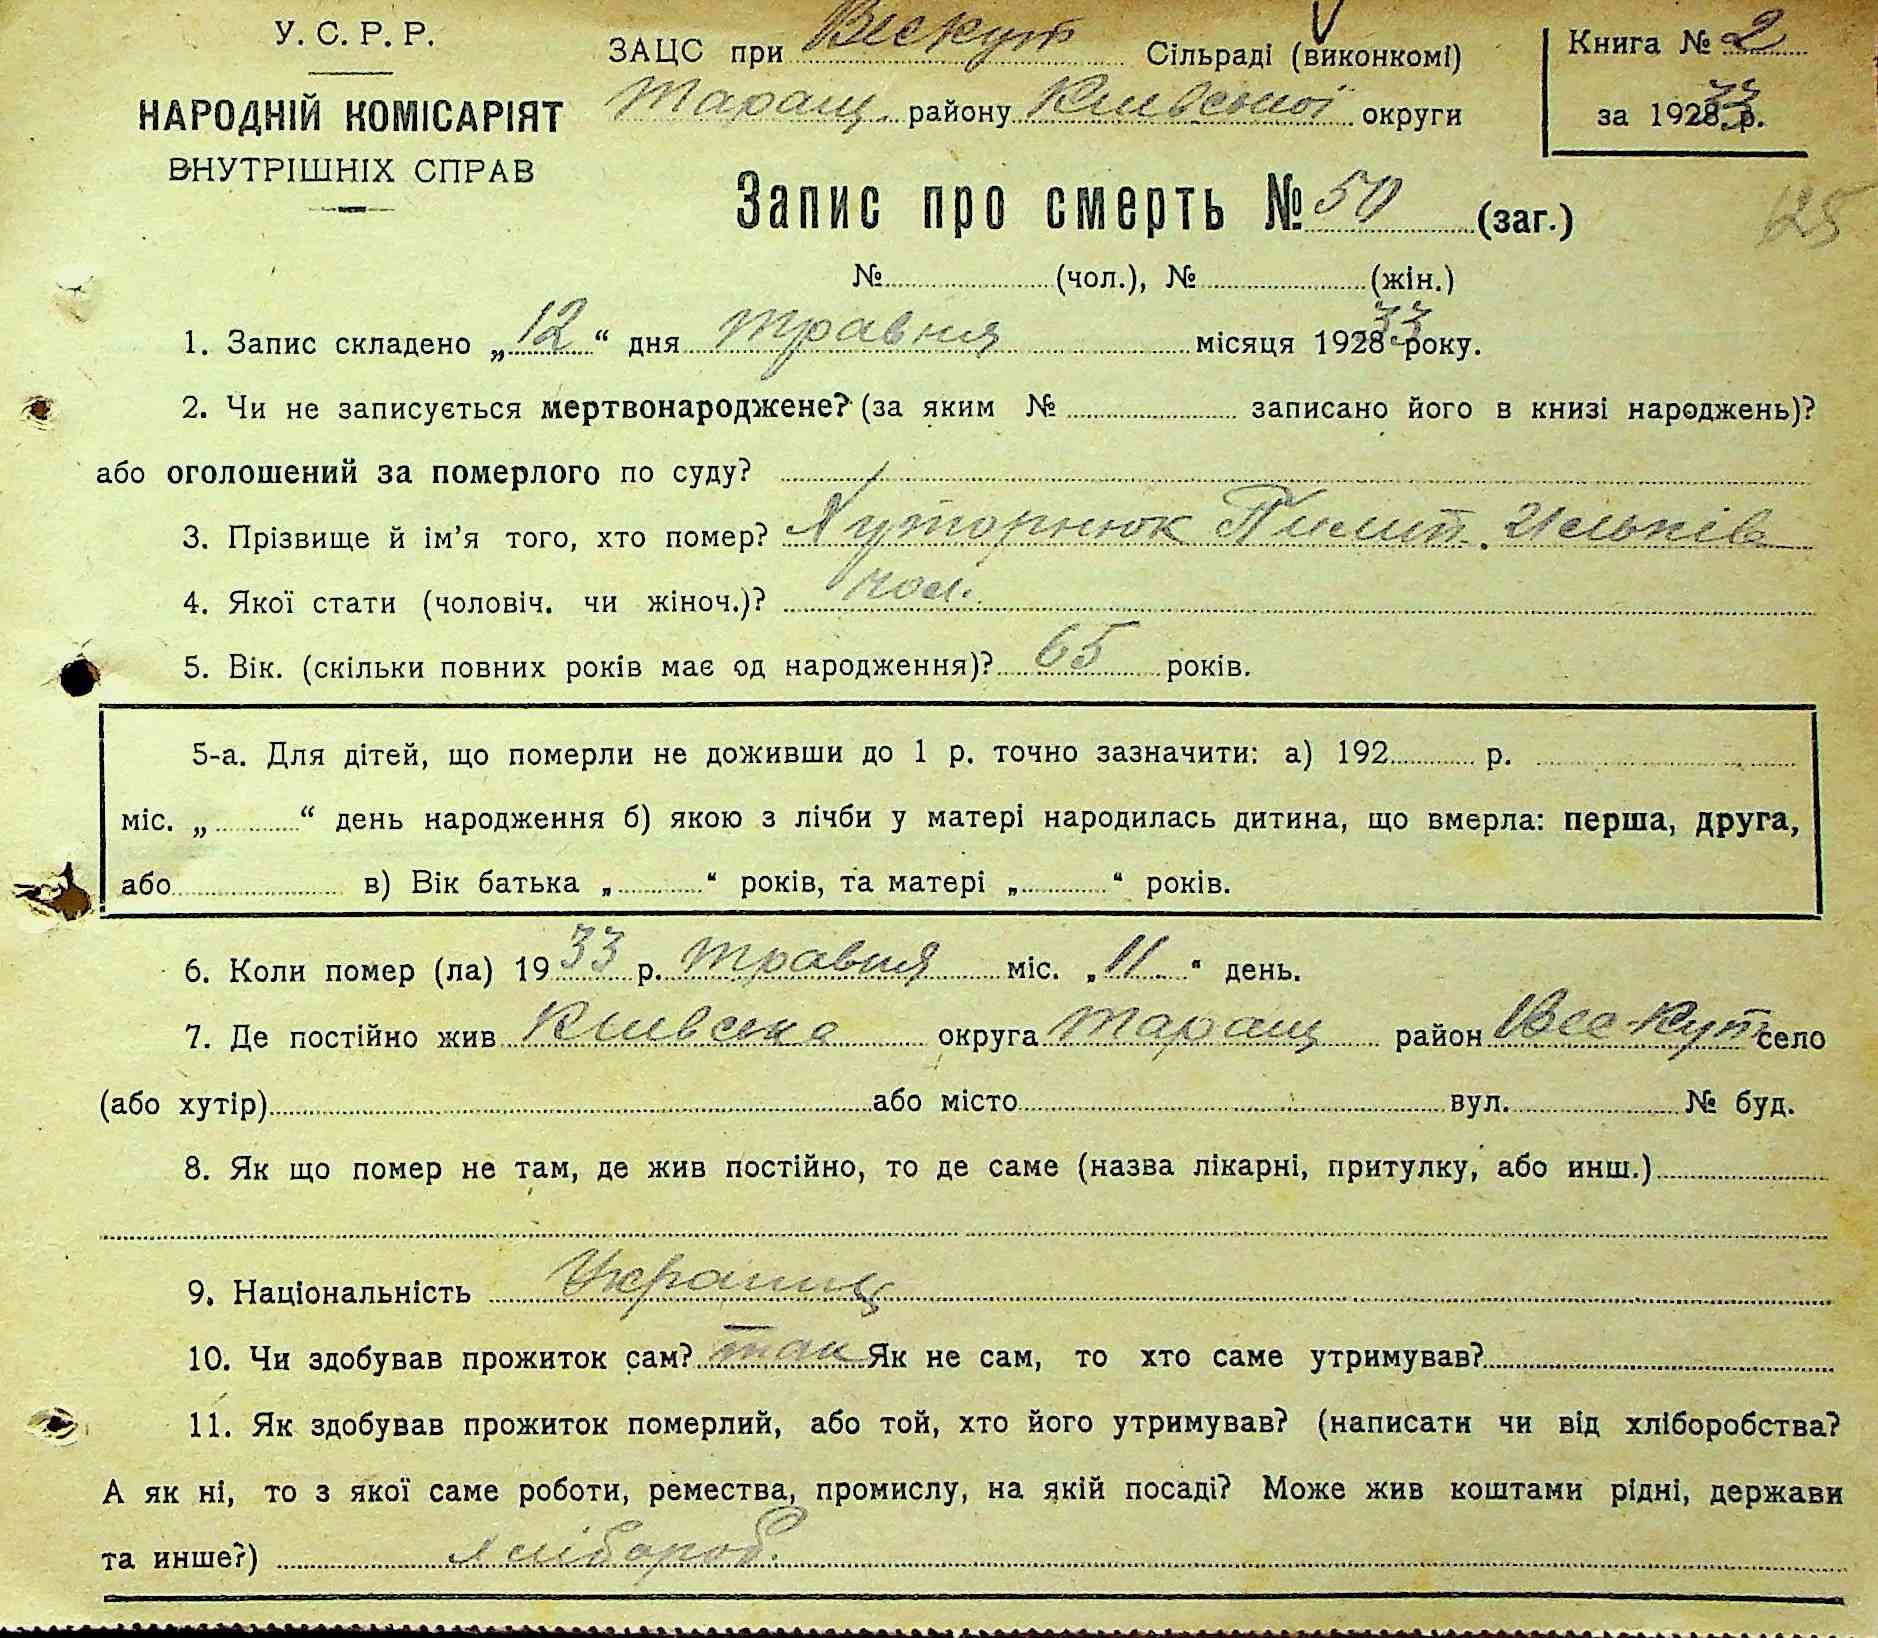 У. С. Р. Р.
НАРОДНІЙ КОМІСАРІЯТ
ВНУТРІШНІХ СПРАВ
ЗАЦС при Вескут Сільраді (виконкомі)
Таращ. району Київської округи
Книга № 2
за 1928 33 р.
Запис про смерть № 50 (заг.)
125
№ (чол.), № (жін.)
1. Запис складено „12“ дня травня місяця 1928 33 року.
2. Чи не записується мертвонароджене? (за яким № записано його в книзі народжень)?
або оголошений за померлого по суду?
3. Прізвище й ім'я того, хто помер? Хуторнюк Пилип. Ильків
4. Якої стати (чоловіч. чи жіноч.)? чол.
5. Вік. (скільки повних років має од народження)? 65 років.
5-а. Для дітей, що померли не доживши до 1 р. точно зазначити: а) 192 р.
міс. „ “ день народження б) якою з лічби у матері народилась дитина, що вмерла: перша, друга,
або в) Вік батька „ “ років, та матері „ “ років.
6. Коли помер (ла) 1933 р. травня міс. „11“ день.
7. Де постійно жив Київська округа Таращ район Вес-Кут село
(або хутір) або місто вул. № буд.
8. Як що помер не там, де жив постійно, то де саме (назва лікарні, притулку, або инш.)
9. Національність Украинц
10. Чи здобував прожиток сам? так Як не сам, то хто саме утримував?
11. Як здобував прожиток померлий, або той, хто його утримував? (написати чи від хліборобства?
А як ні, то з якої саме роботи, ремества, промислу, на якій посаді? Може жив коштами рідні, держави
та инше?) хлібороб.